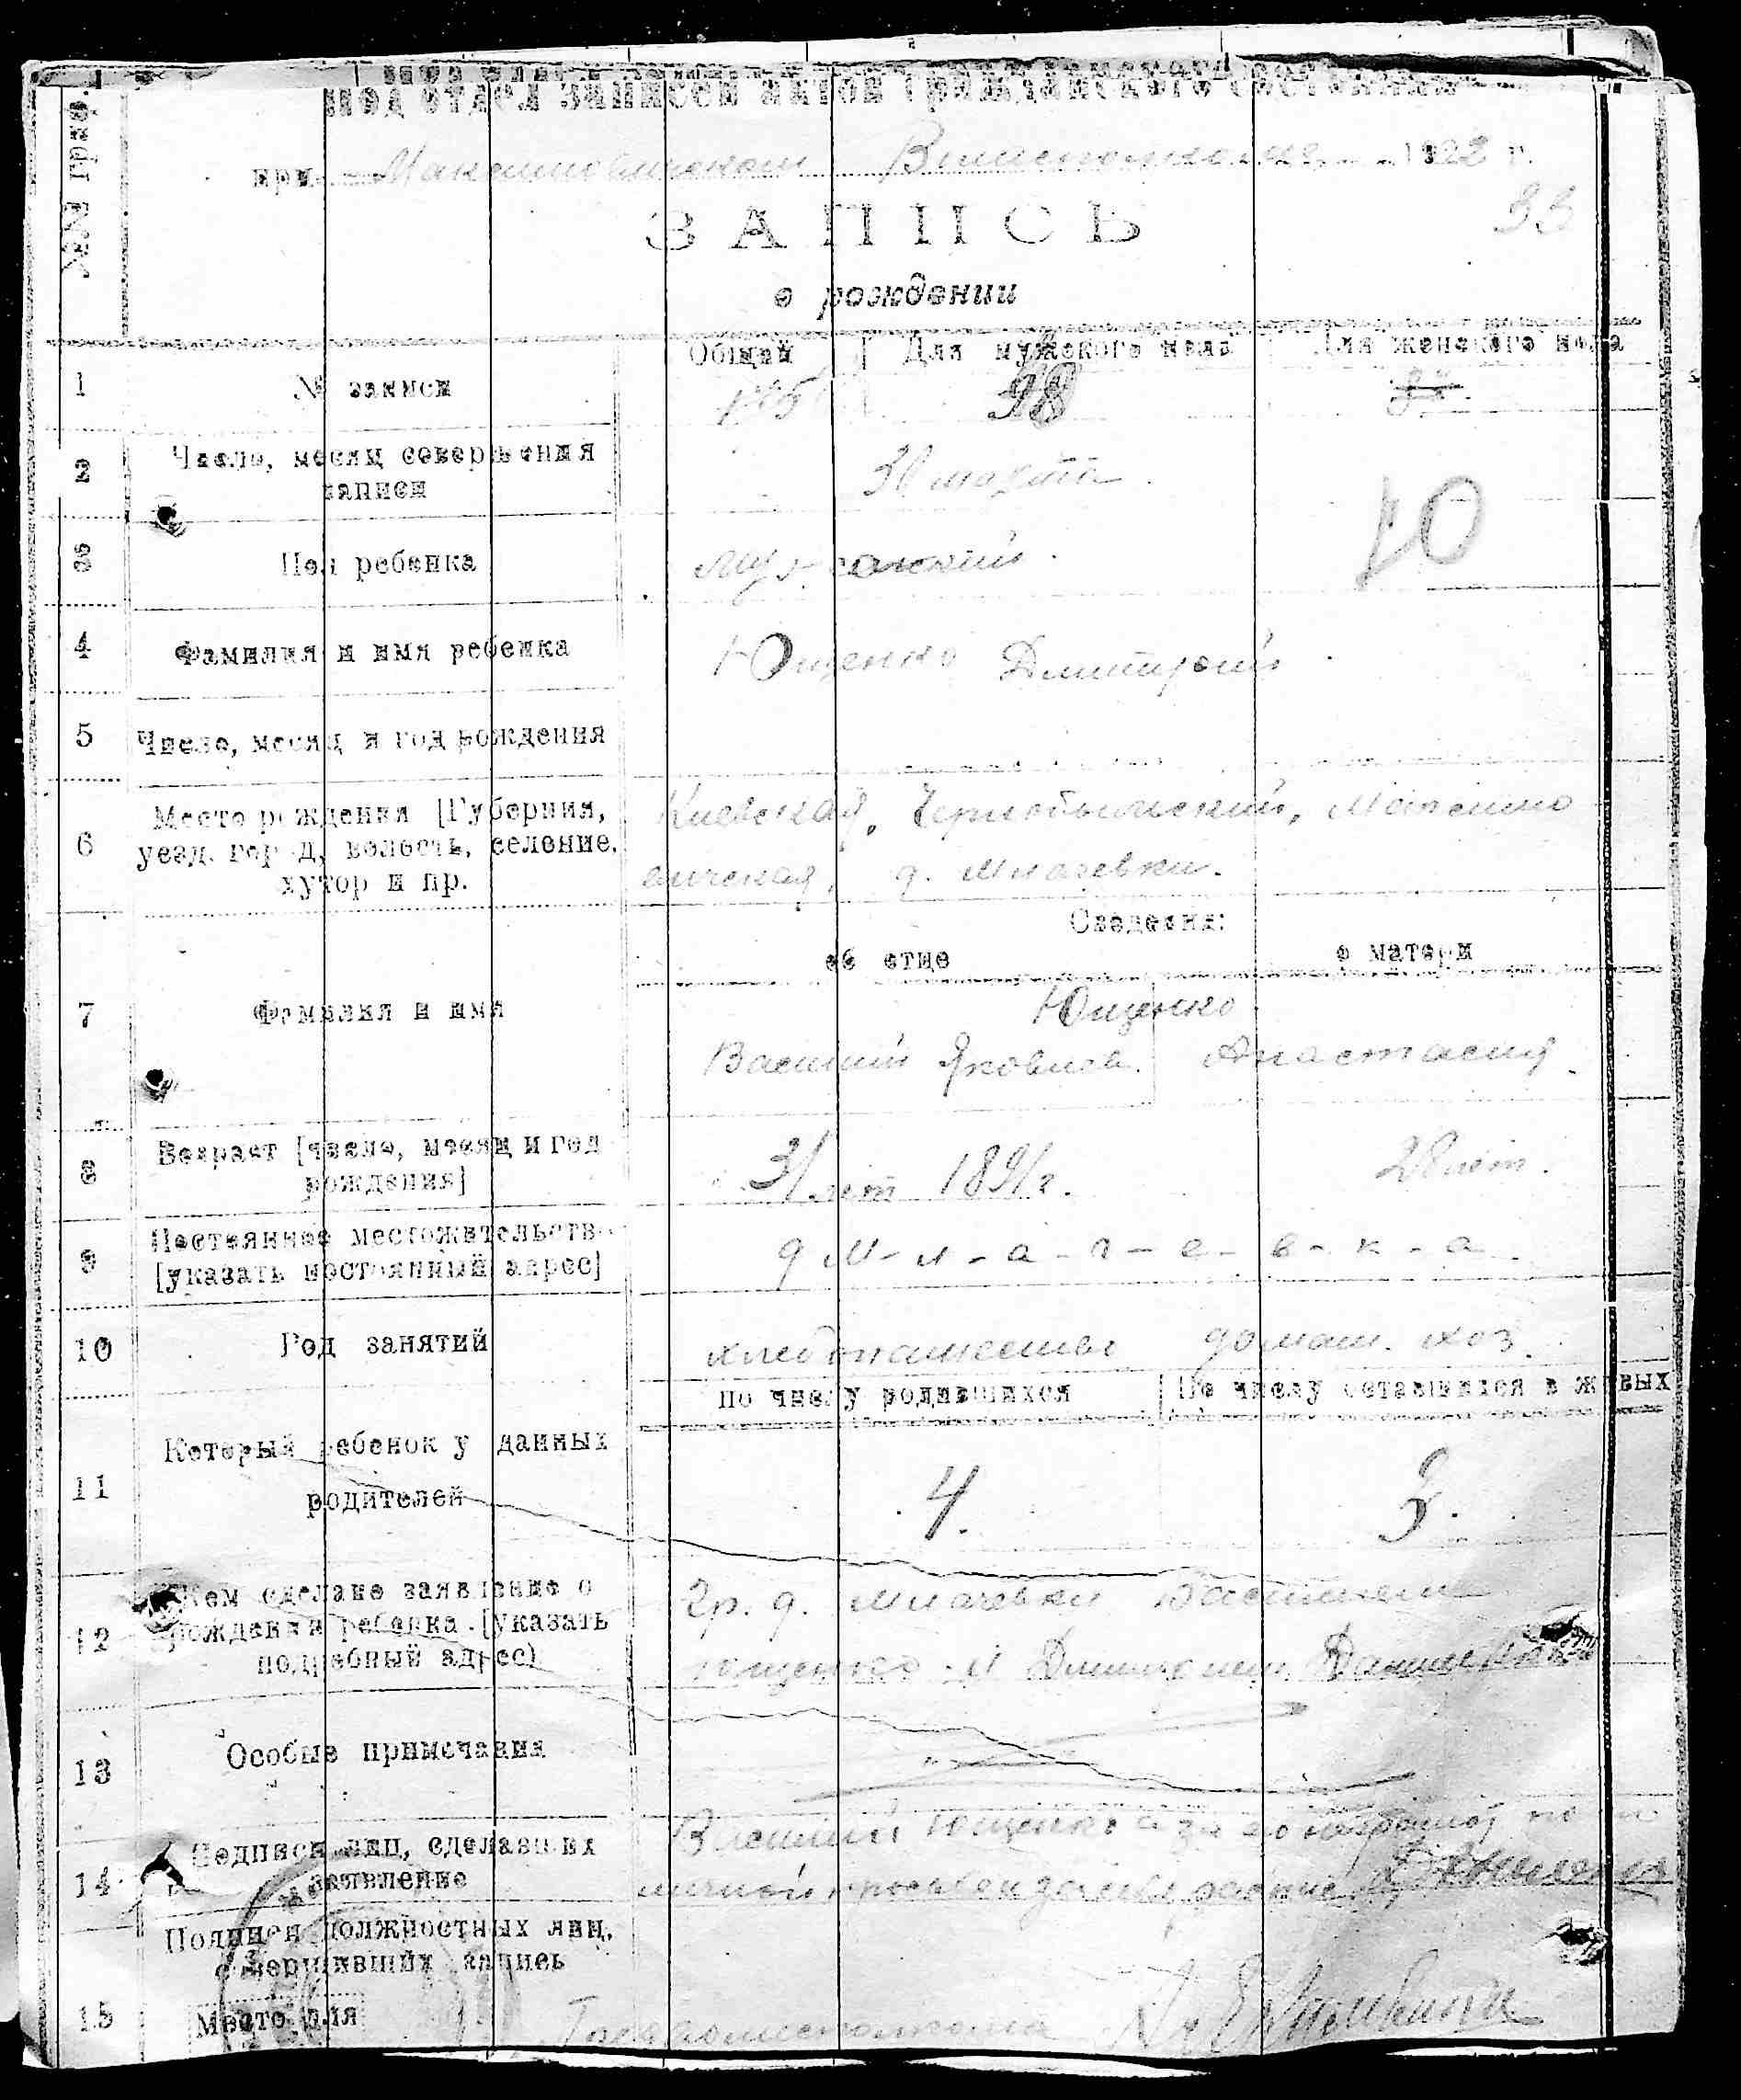 Под'отдел записей актов гражданского состояния
при Максимовическом Волисполкоме 1922 г.
33
ЗАПИСЬ
о рождении
№№ граф
Общий Для мужского пола Для женского пола
1 № записи 98
2 Число, месяц совершения записи 30 марта
10
3 Пол ребенка мужеский
4 Фамилия и имя ребенка Ющенко Дмитрий
5 Число, месяц и год рождения
6 Место рождения [Губерния, Киевская, Чернобыльский, Максимо
уезд, город, волость, селение, вичская, д. Млачевки.
хутор и пр.
Сведения:
об отце о матери
7 Фамилия и имя Ющенко
Василий Яковлев. Анастасия
8 Возраст [число, месяц и год рождения] 31 лет 1891 г. 28 лет.
9 Постоянное местожительство
[указать постоянный адрес] д М-л-а-ч-е-в-к-а
10 Род занятий хлебопашество домаш. хоз.
по числу родившихся По числу оставшихся в живых
11 Который ребенок у данных
родителей 4. 3.
12 Кем сделано заявление о гр. д. Млачевки Василием
рождении ребенка [указать Ющенко и
подробный адрес)
13 Особые примечания
14 Подписи лиц, сделавших Василий Ющенко а за его неграмот по
заявление личной просьбе
Подписи должностных лиц,
совершивших запись
15 Место для